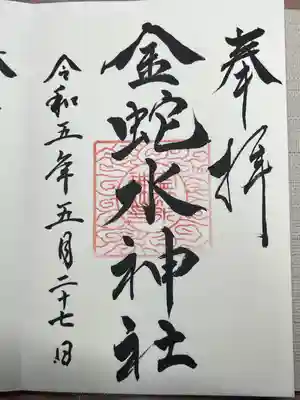 奉拝
金蛇水神社
令和五年五月二十七日